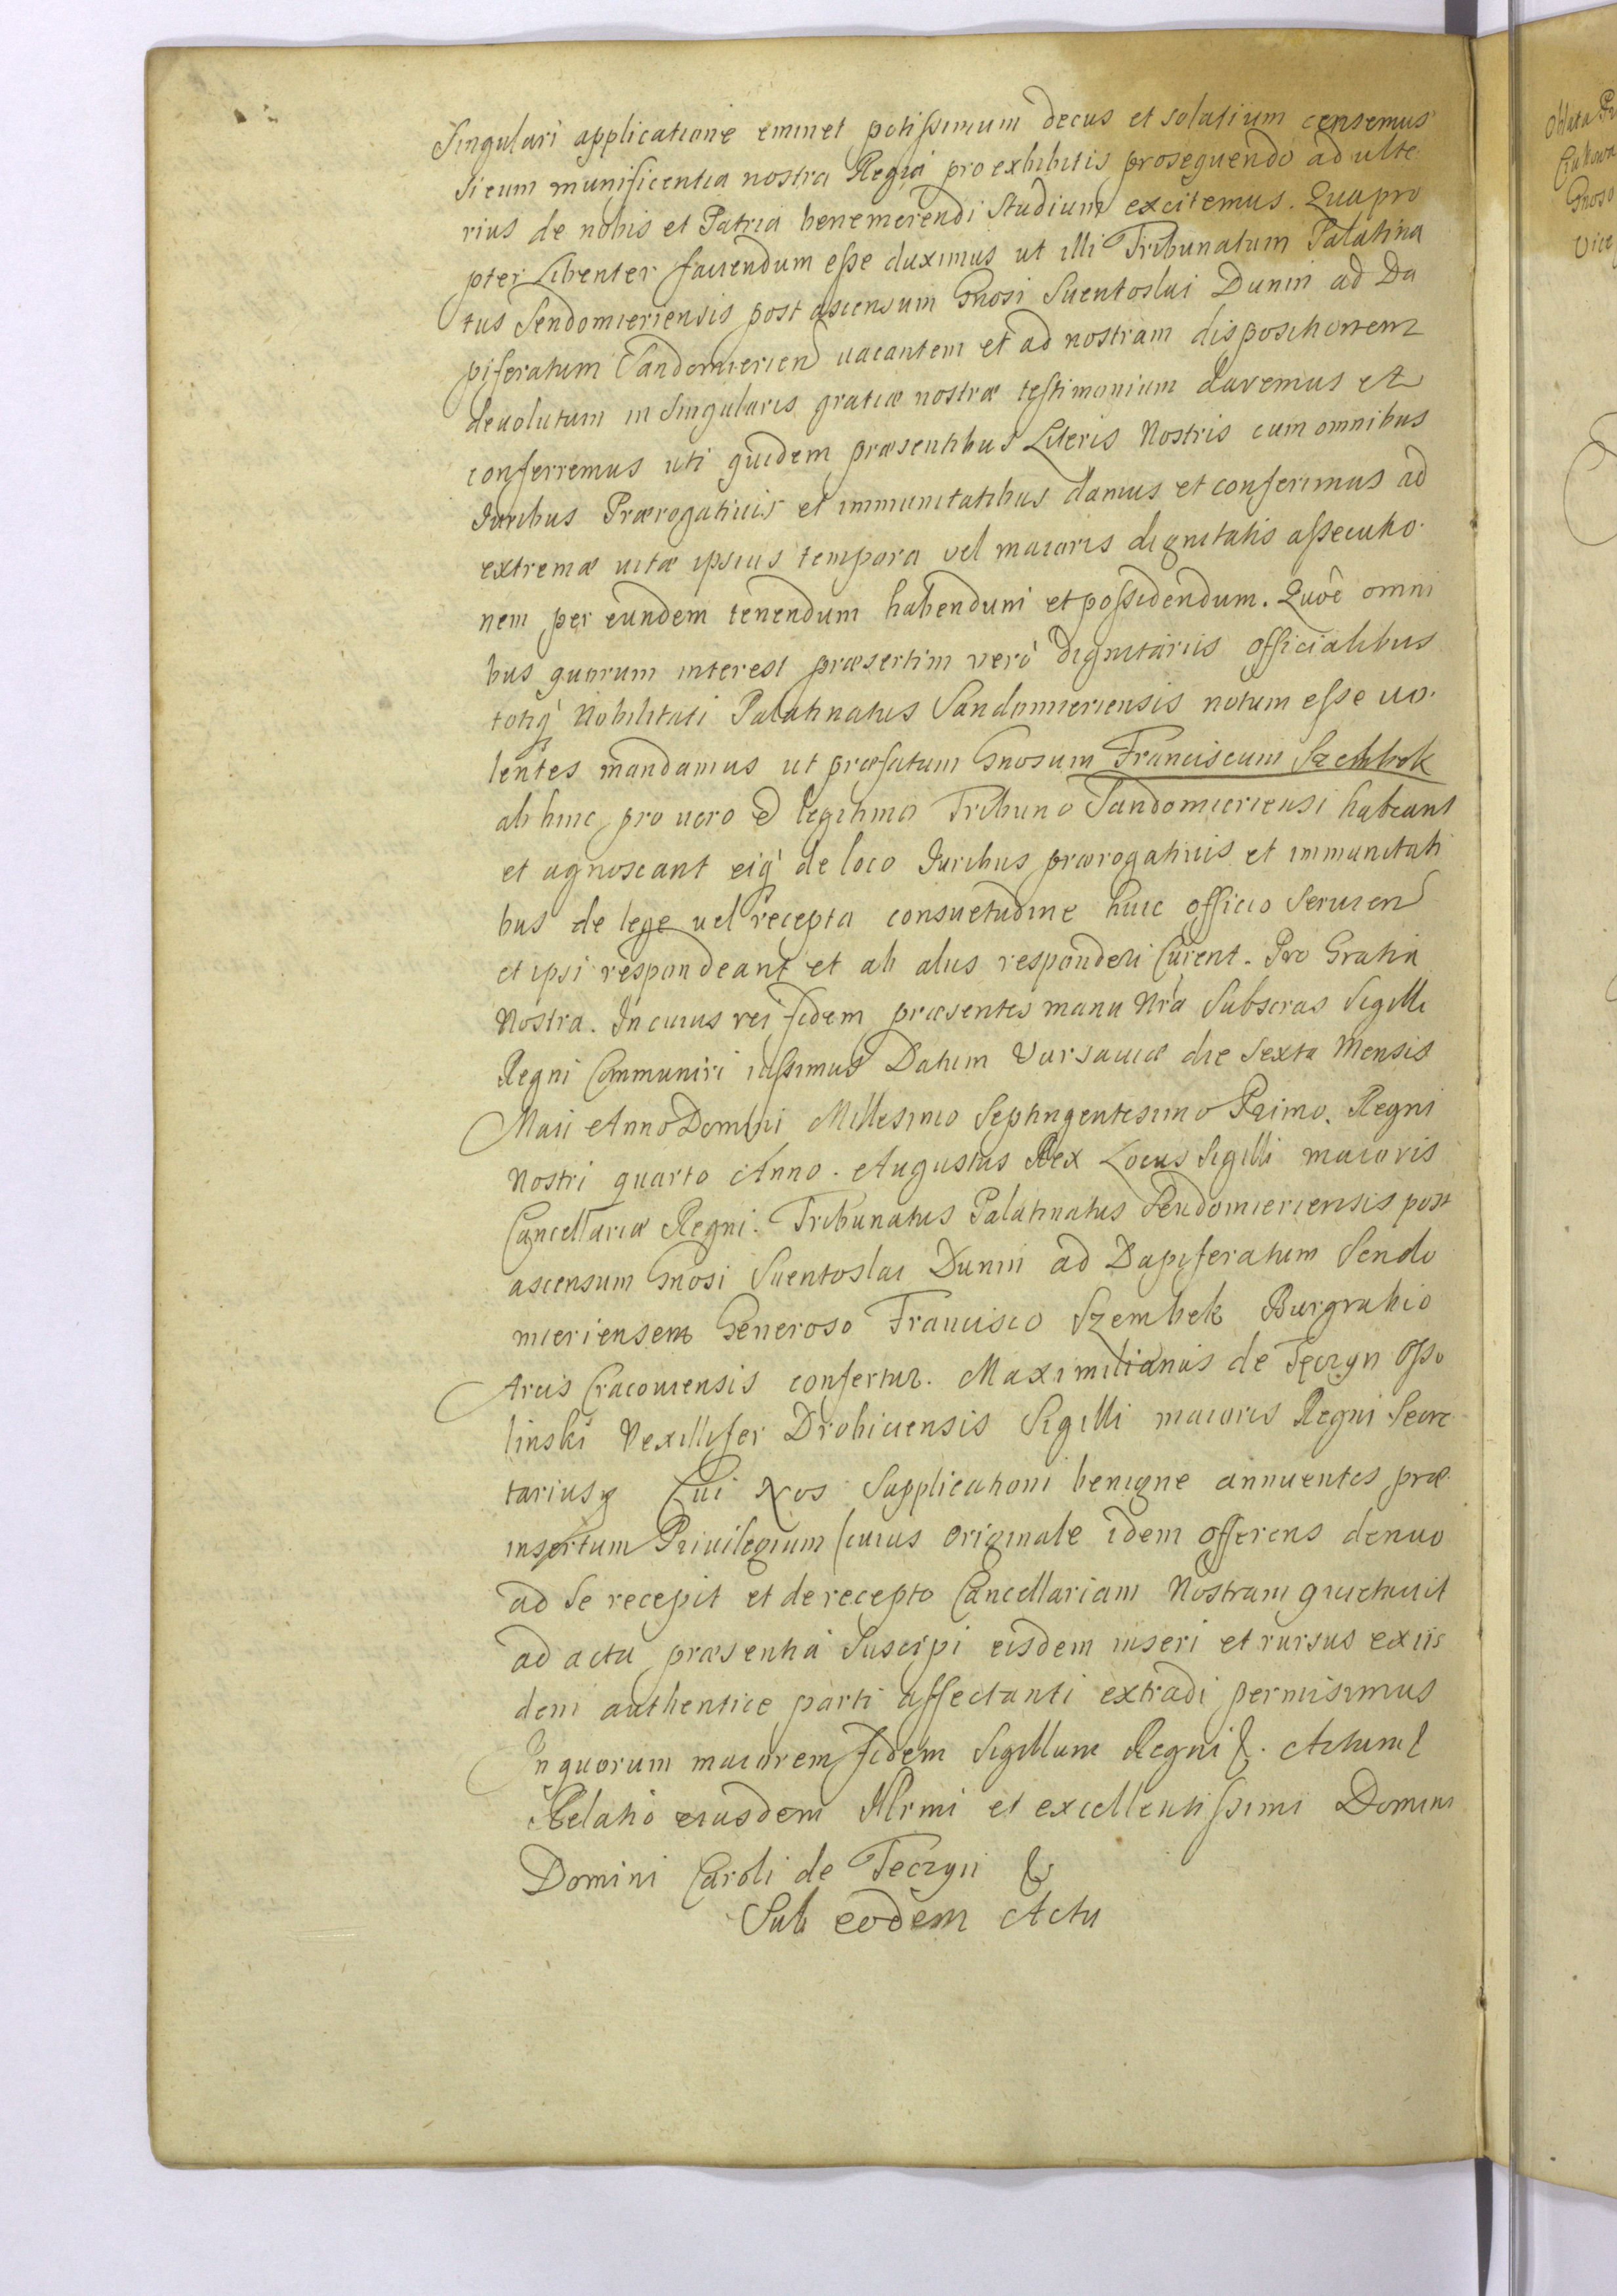 Singulari applicatione eminet potissimum decus et solatium censemus
Si eum munificentia nostra Regia pro exhibitis prosequendo ad ulte
rius de nobis et Patria benemerendi studium excitemus. Quapro
pter Libenter fauendum esse duximus ut illi Tribunatum Palatina
tus Sendomieriensis post ascensum Gnosi Suentoslai Dunin ad Da
piferatum Sandomierien uacantem et ad nostram dispositionem
deuolutum in Singularis gratiæ nostræ testimonium daremus et
conferremus uti quidem præsentibus Literis Nostris cum omnibus
Iuribus Prærogatiuis et immunitatibus damus et conferimus ad
extrema uitæ ipsius tempora vel maioris dignitatis assecutio
nem per eundem tenendum habendum et possidendum. Quod omni
bus quorum interest præsertim verò dignitariis officialibus
totiq Nobilitati Palatinatus Sandomieriensis notum esse uo
lentes mandamus ut præfatum Gnosum Franciscum Szembek
ab hinc pro uero et legitimo Tribuno Sandomieriensi habeant
et agnoscant eiq de loco Iuribus prærogatiuis et immunitati
bus de lege uel recepta consuetudine huic officio Seruien
et ipsi respondeant et ab alus responderi Curent. Pro Gratia
Nostra. In cuius rei fidem præsentes manu Nra Subscras Sigilli
Regni Communiri iussimus Datum Varsauiæ die Sexta Mensis
Maii Anno Domini Millesimo Septingentesimo Primo. Regni
Nostri quarto Anno. Augustus Rex Locus Sigilli maioris
Cancellariæ Regni. Tribunatus Palatinatus Sendomieriensis post
ascensum Gnosi Suentoslai Dunin ad Dapiferatum Sendo
mieriensem Generoso Francisco Szembek Burgrabio
Arcis Cracouiensis confertur. Maximilianus de Tęczyn Osso
linski Vexillifer Drohiciensis Sigilli maioris Regni Secre
tariusq Cui Nos Supplicationi benigne annuentes præ
insertum Priuilegium (cuius originale idem offerens denuo
ad Se recepit et de recepto Cancellariam Nostram quietauit
ad acta præsentia Suscipi eisdem inseri et rursus ex iis
dem authentice parti affectanti extradi permisimus
In quorum maiorem fidem Sigillum Regni &. Actum &
Relatio eiusdem Illrmi et excellentissimi Domini
Domini Caroli de Teczyn &
Sub eodem Actu